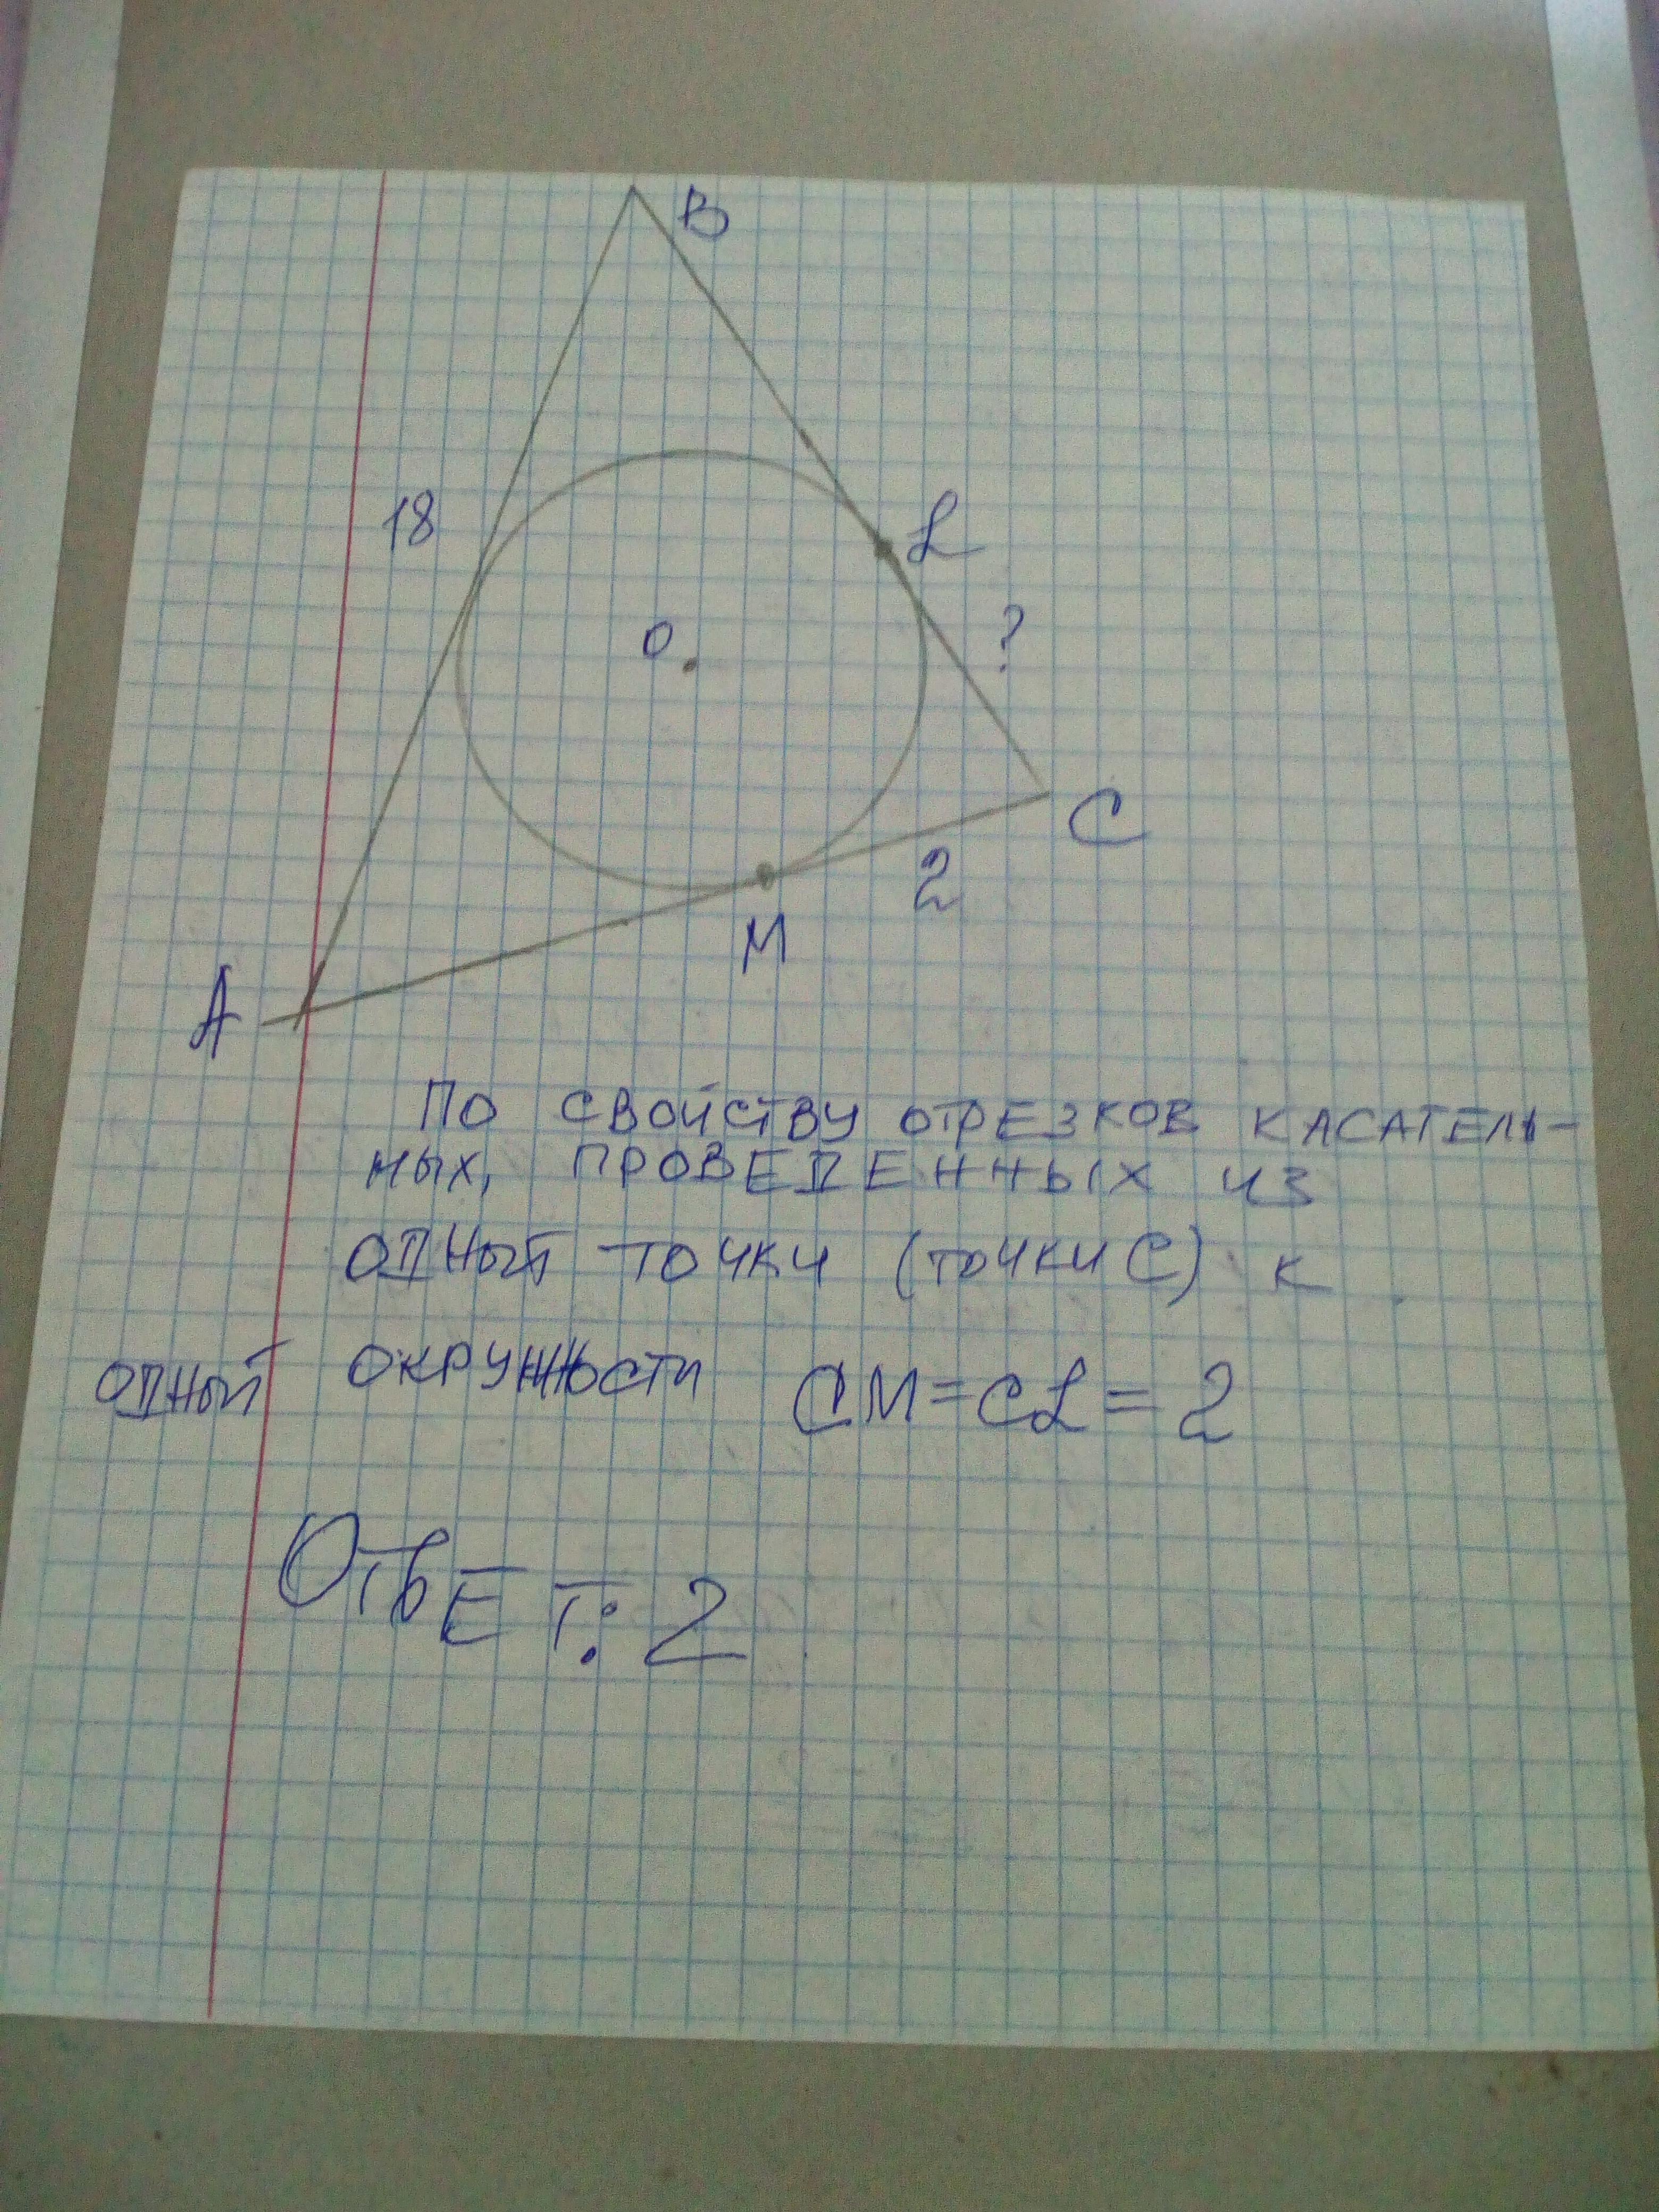 B
18
L
O
?
C
2
M
A
По свойству отрезков касатель-
ных, проведенных из
одный точки (точки С) к
одный окружности CM=CL=2
Ответ: 2